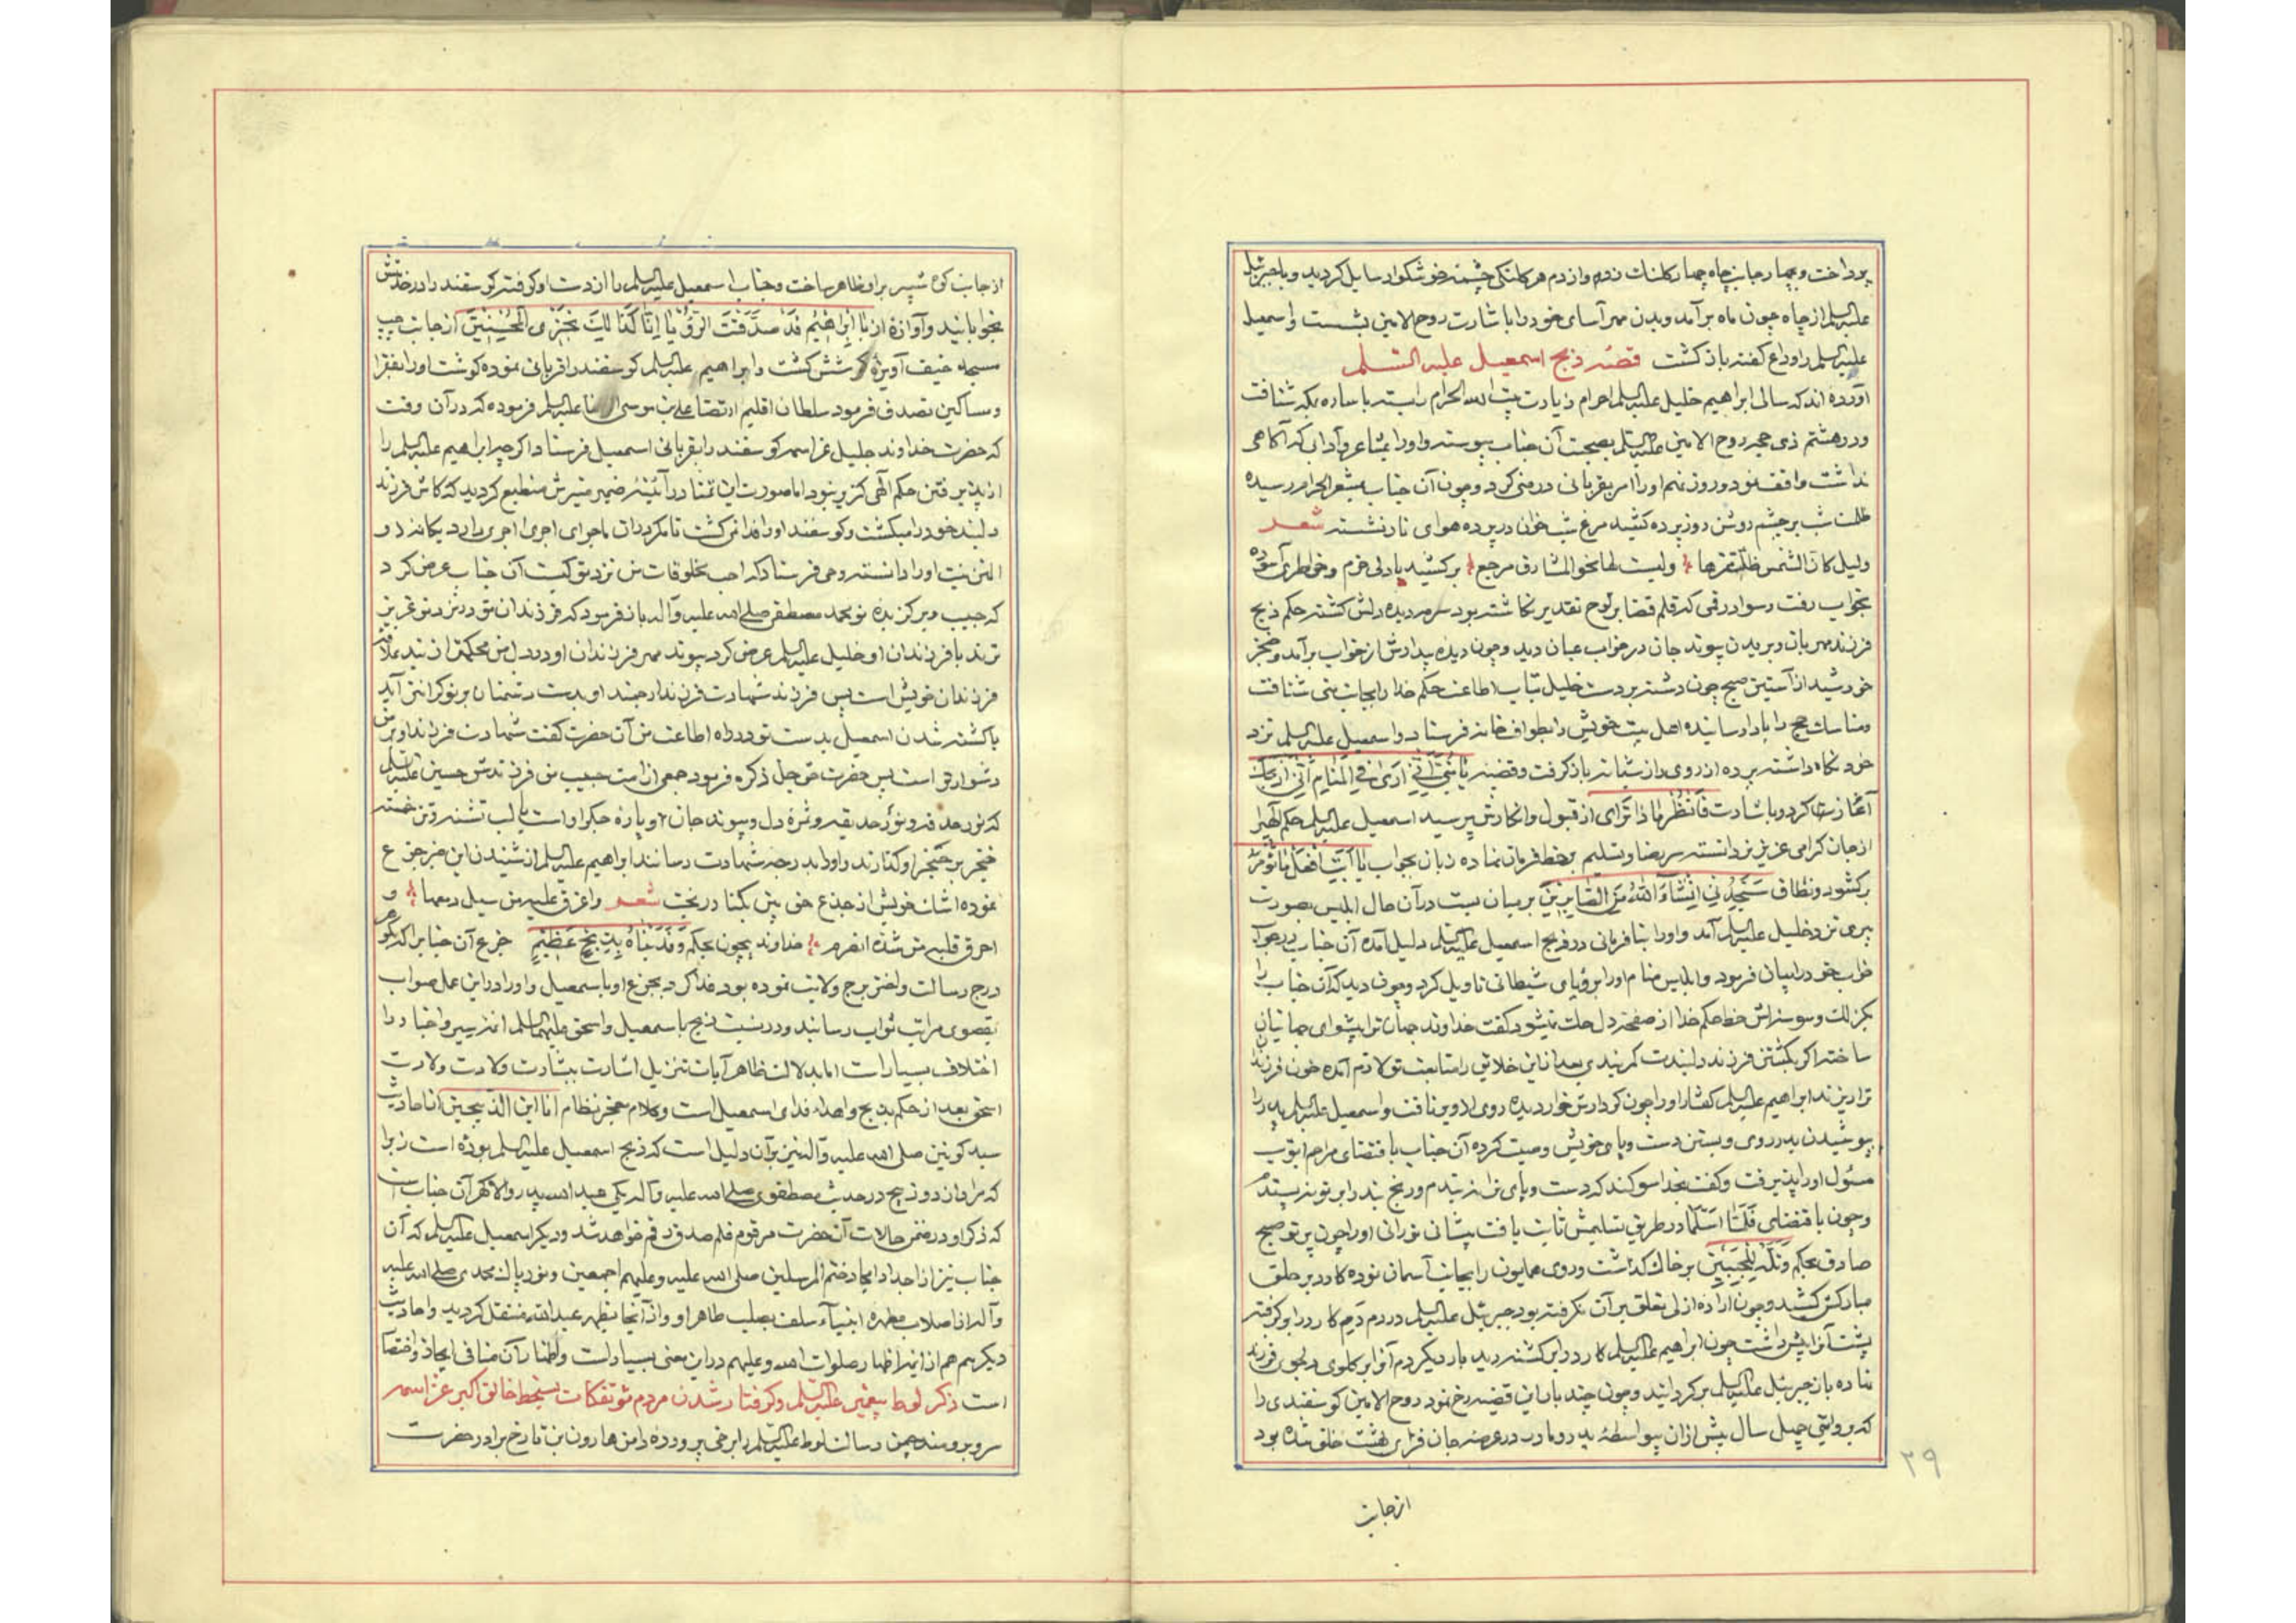 پرداخت و بچهار جانب چاه چهار کلنک زده واز دم هر کلنکی چشمه خوشکوار سایل کردید و با جبرئیل
علیه السلم از چاه چون ماه برآمد وبدن مهر آسای خود را باشارت روح الامین بشست و اسمعیل
علیه السلم را وداع کفته بازکشت قصه ذبح اسمعیل علیه السلم
آورده اند که سالی ابراهیم خلیل علیه السلم احرام زیارت بیت الله الحرام را بسته با ساره بمکه شتافت
ودر هشتم ذی حجه روح الامین علیه السلم بصحبت آن جناب پیوسته واو را بمشاعر وآدابی که آکاهی
نداشت واقف نمود و روز نهم او را امر بقربانی در منی کرد وچون آن جناب بمشعر الحرام رسیده
ظلمت شب بر چشم روشن روز پرده کشید مرغ شب خوان در پرده هوای تار نشسته شعر
ولیل کان الشمس ظلت مقرها ولیست لها نحو المشارق مرجع بر کشید با دلی خرم وخاطری آسوده
بخواب رفت وسواد رقمی که قلم قضا بر لوح تقدیر نکاشته بود سرمه دیده دلش کشته حکم ذبح
فرزند مهربان وبریدن پیوند جان در خواب عیان دید وچون دیده بیدارش از خواب برآمد وخنجر
خورشید از آستین صبح چون دشنه بر دست خلیل بتاب اطاعت حکم خدا را بجانب منی شتافت
ومناسک حج را بادا رسانیده اهل بیت خویش را بطواف خانه فرستاد و اسمعیل علیه السلم نزد
خود نکاه داشته پرده از روی راز شبانه باز کرفت وقضیه یا بنی انی اری فی المنام انی اذبحک
آغاز کرد وباشارت فانظر ماذا تری از قبول وانکارش پرسید اسمعیل علیه السلم حکم الهی را
از جان کرامی عزیز تر دانسته سر رضا وتسلیم بر خط فرمان نهاده زبان بجواب یا ابت افعل ما تؤمر
برکشود ونطاق ستجدنی انشاء الله من الصابرین بر میان بست در آن حال ابلیس بصورت
پیری نزد خلیل علیه السلم آمد واو را بنافرمانی در ذبح اسمعیل علیه السلم دلیل آمده آن جناب در جواب
خواب خود را بیان فرمود وابلیس منام او را برؤیای شیطانی تاویل کرد وچون دید که آن جناب را
بکزلک وسوسه اش خط حکم خدا از صفحه دل حک نمیشود کفت خداوند جهان ترا پیشوای جهانیان
ساخته اکر بکشتن فرزند دلبندت کمر بندی بعد از این خلایق را متابعت تو لازم آمده خون فرزند
ترا ریزند ابراهیم علیه السلم کفتار او را چون کردارش خوار دیده روی از او برتافت واسمعیل علیه السلم پدر را
بپوشیدن پدر روی وبستن دست وپای خویش وصیت کرده آن جناب باقتضای مراحم ابوت
مسئول او را پذیرفت وکفت بخدا سوکند که دست وپای ترا نبندم ورنج بند را بر تو نپسندم
وچون باقتضای فلما اسلما در طریق تسلیمش ثابت یافت پیشانی نورانی او را چون پرتو صبح
صادق بحکم وتله للجبین بر خاک کذاشت وروی همایون را بجانب آسمان نموده کارد بر حلق
مبارکش کشید وچون اراده ازلی تعلق بر آن نکرفته بود جبرئیل علیه السلم در دم دم کارد را بر کرفته
پشت آنرا پیش داشت چون ابراهیم علیه السلم کارد را بر کشته دید بار دیکر دم آنرا بر کلوی دلجوی فرزند
نهاده باز جبرئیل علیه السلم بر کردانید وچون چند بار این قضیه رخ نمود روح الامین کوسفندی را
که بروایتی چهل سال پیش از آن بیواسطه پدر ومادر در عرصه جان فزای بهشت خلق شده بود
۲۹
از جانب
از جانب کوه ثبیر بر او ظاهر ساخت وجناب اسمعیل علیه السلم را از دست او کرفته کوسفند را در خدمتش
بخوابانید وآوازه از یا ابراهیم قد صدقت الرؤیا انا کذالک نجزی المحسنین از جانب چپ
مسجد خیف آویزه کوشش کشت وابراهیم علیه السلم کوسفند را قربانی نموده کوشت او را بفقرا
ومساکین تصدق فرمود سلطان اقلیم ارتضا علی بن موسی الرضا علیه السلم فرموده که در آن وقت
که حضرت خداوند جلیل عز اسمه کوسفند را بقربانی اسمعیل فرستاد اکرچه ابراهیم علیه السلم را
از پذیرفتن حکم الهی کزیر نبود اما صورت این تمنا در آئینه ضمیر منیرش منطبع کردید که کاش فرزند
دلبند خود را میکشت وکوسفند او را فدا نمی کشت تا مکر در آن ماجرای اجری را دریابد
نیت او را دانسته وحی فرستاد که احب مخلوقات من نزد تو کیست آن جناب عرض کرد
که حبیب وبر کزیده تو محمد مصطفی صلی الله علیه وآله باز فرمود که فرزندان تو در نزد تو عزیز
ترند یا فرزندان او خلیل علیه السلم عرض کرد پیوند مهر فرزندان او در دل من محکمتر از بند علاقه
فرزندان خویش است پس فرزند شهادت فرزند ارجمند او بدست دشمنان بر تو کرانتر آید
یا کشته شدن اسمعیل بدست تو در راه اطاعت من آن حضرت کفت شهادت فرزند او بر من
دشوارتر است پس حضرت حق جل ذکره فرمود جمعی از امت حبیب من فرزندش حسین علیه السلم
که نور حدقه ونور حدیقه وثمره دل وپیوند جان وپاره جکر او است با لب تشنه وتن خسته
خنجر بر حنجر او کذارند واو را بدرجه شهادت رسانند ابراهیم علیه السلم از شنیدن این خبر جزع
نموده اشک خونش از جزع حق بین بکنار ریخت شعر واغرق علیه من سیل دمعها و
احرق قلبه من شدة خداوند بیچون بحکم وفدیناه بذبح عظیم جزع آن جناب را که بر کوهر
درج رسالت واختر برج ولایت نموده بود فدا کرد بجزع او باسمعیل واو را در این عمل صواب
بقصوی مراتب ثواب رسانید ودر نسبت ذبح باسمعیل واسحق علیهما السلم ائمه سیر واخبار را
اختلاف بسیار است اما بدلالت ظاهر آیات تنزیل اشارت ببشارت ولادت
اسحق بعد از حکم بذبح واهداء فدای اسمعیل است وکلام معجز نظام انا ابن الذبیحین از احادیث
سید کونین صلی الله علیه وآله نیز بر آن دلیل است که ذبیح اسمعیل علیه السلم بوده است زیرا
که مراد از دو ذبیح در حدیث مصطفوی صلی الله علیه وآله یکی عبد الله پدر والاکهر آن جناب است
که ذکر او در ضمن حالات آن حضرت مرقوم قلم صدق رقم خواهد شد ودیکر اسمعیل علیه السلم که آن
جناب نیز از اجداد امجاد ختم المرسلین صلی الله علیه وعلیهم اجمعین ونور پاک محمدی صلی الله علیه
وآله از اصلاب مطهره انبیآء سلف بصلب طاهر او واز آنجا بظهر عبد الله منتقل کردید واحادیث
دیکر هم از ائمه اطهار صلوات الله علیهم در این معنی بسیار است واظهار آن منافی ایجاز واختصار
است ذکر لوط پیغمبر علیه السلم وکرفتار شدن مردم مؤتفکات بسخط خالق اکبر عز اسمه
سرو برومند چمن رسالت لوط علیه السلم را برخی پرورده دامن هارون بن تارخ برادر حضرت